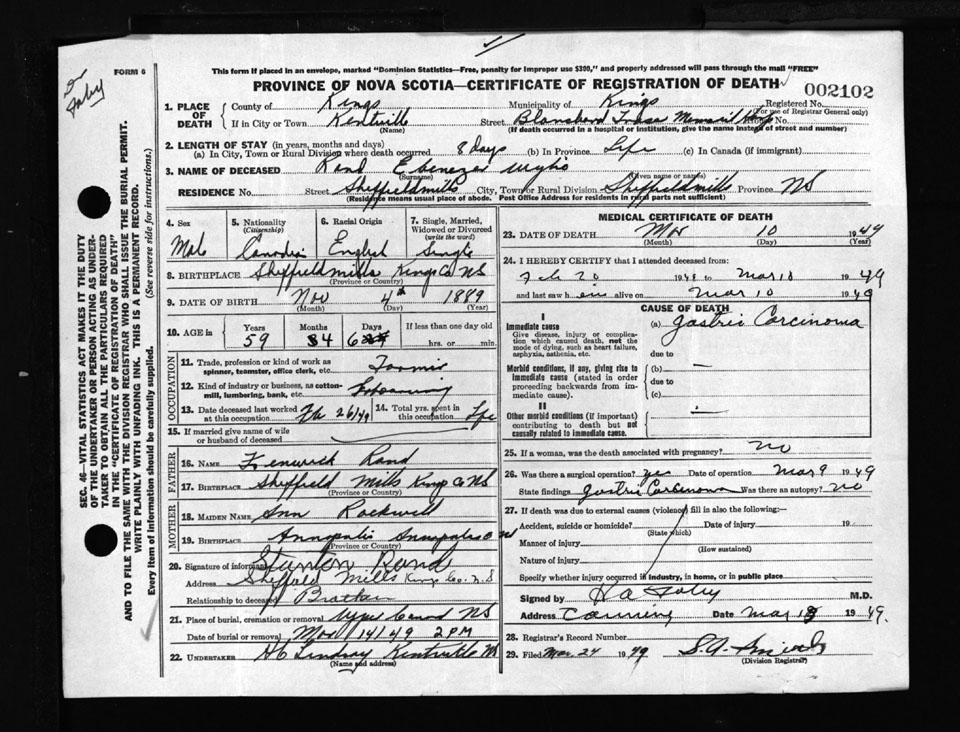 Dr
Foley
FORM 6
This form if placed in an envelope, marked "Dominion Statistics—Free, penalty for improper use $300," and properly addressed will pass through the mail "FREE"
PROVINCE OF NOVA SCOTIA—CERTIFICATE OF REGISTRATION OF DEATH
002102
1. PLACE OF DEATH
County of Kings Municipality of Kings Registered No.
(For use of Registrar General only)
If in City or Town Kentville Street Memorial House No.
(Name) (If death occurred in a hospital or institution, give the name instead of street and number)
2. LENGTH OF STAY (in years, months and days)
(a) In City, Town or Rural Division where death occurred 8 days (b) In Province Life (c) In Canada (if immigrant)
3. NAME OF DECEASED Rand Ebenezer
(Surname) (Given name or names)
RESIDENCE No. Street Sheffield mills City, Town or Rural Division Sheffield mills Province NS
(Residence means usual place of abode. Post Office Address for residents in rural parts not sufficient)
4. Sex Male
5. Nationality (Citizenship) Canadian
6. Racial Origin English
7. Single, Married, Widowed or Divorced (write the word) Single
8. BIRTHPLACE Sheffield mills Kings Co NS
(Province or Country)
9. DATE OF BIRTH Nov 4th 1889
(Month) (Day) (Year)
10. AGE in Years 59 Months 4 Days 6 If less than one day old hrs. or min.
OCCUPATION
11. Trade, profession or kind of work as spinner, teamster, office clerk, etc. Farmer
12. Kind of industry or business, as cotton-mill, lumbering, bank, etc. Farming
13. Date deceased last worked at this occupation Feb 26/49 14. Total yrs. spent in this occupation Life
15. If married give name of wife or husband of deceased
FATHER
16. NAME Fenwick Rand
17. BIRTHPLACE Sheffield Mills Kings Co NS
(Province or Country)
MOTHER
18. MAIDEN NAME Ann Rockwell
19. BIRTHPLACE Annapolis Annapolis Co NS
(Province or Country)
20. Signature of informant Stanton Rand
Address Sheffield Mills Kings Co. N.S
Relationship to deceased Brother
21. Place of burial, cremation or removal Upper Canard NS
Date of burial or removal Mar 14/49 2 PM
22. UNDERTAKER Lindsay Kentville NS
(Name and address)
MEDICAL CERTIFICATE OF DEATH
23. DATE OF DEATH Mar 10 1949
(Month) (Day) (Year)
24. I HEREBY CERTIFY that I attended deceased from:
Feb 20 1948 to Mar 10 1949
and last saw him alive on Mar 10 1949
CAUSE OF DEATH
I
Immediate cause
Give disease, injury or complication which caused death, not the mode of dying, such as heart failure, asphyxia, asthenia, etc.
(a) Gastric Carcinoma
due to
Morbid conditions, if any, giving rise to immediate cause (stated in order proceeding backwards from immediate cause).
(b) —
due to
(c)
II
Other morbid conditions (if important) contributing to death but not causally related to immediate cause.
25. If a woman, was the death associated with pregnancy? no
26. Was there a surgical operation? yes Date of operation Mar 9 1949
State findings Gastric Carcinoma Was there an autopsy? no
27. If death was due to external causes (violence) fill in also the following:—
Accident, suicide or homicide? Date of injury 19
(State which)
Manner of injury
(How sustained)
Nature of injury
Specify whether injury occurred in industry, in home, or in public place
Signed by M.D.
Address Canning Date Mar 1949.
28. Registrar's Record Number
29. Filed Mar. 24 1949
(Division Registrar)
SEC. 46—VITAL STATISTICS ACT MAKES IT THE DUTY OF THE UNDERTAKER OR PERSON ACTING AS UNDERTAKER TO OBTAIN ALL THE PARTICULARS REQUIRED IN THE "CERTIFICATE OF REGISTRATION OF DEATH" AND TO FILE THE SAME WITH THE DIVISION REGISTRAR WHO SHALL ISSUE THE BURIAL PERMIT.
WRITE PLAINLY WITH UNFADING INK. THIS IS A PERMANENT RECORD.
Every item of information should be carefully supplied. (See reverse side for instructions.)